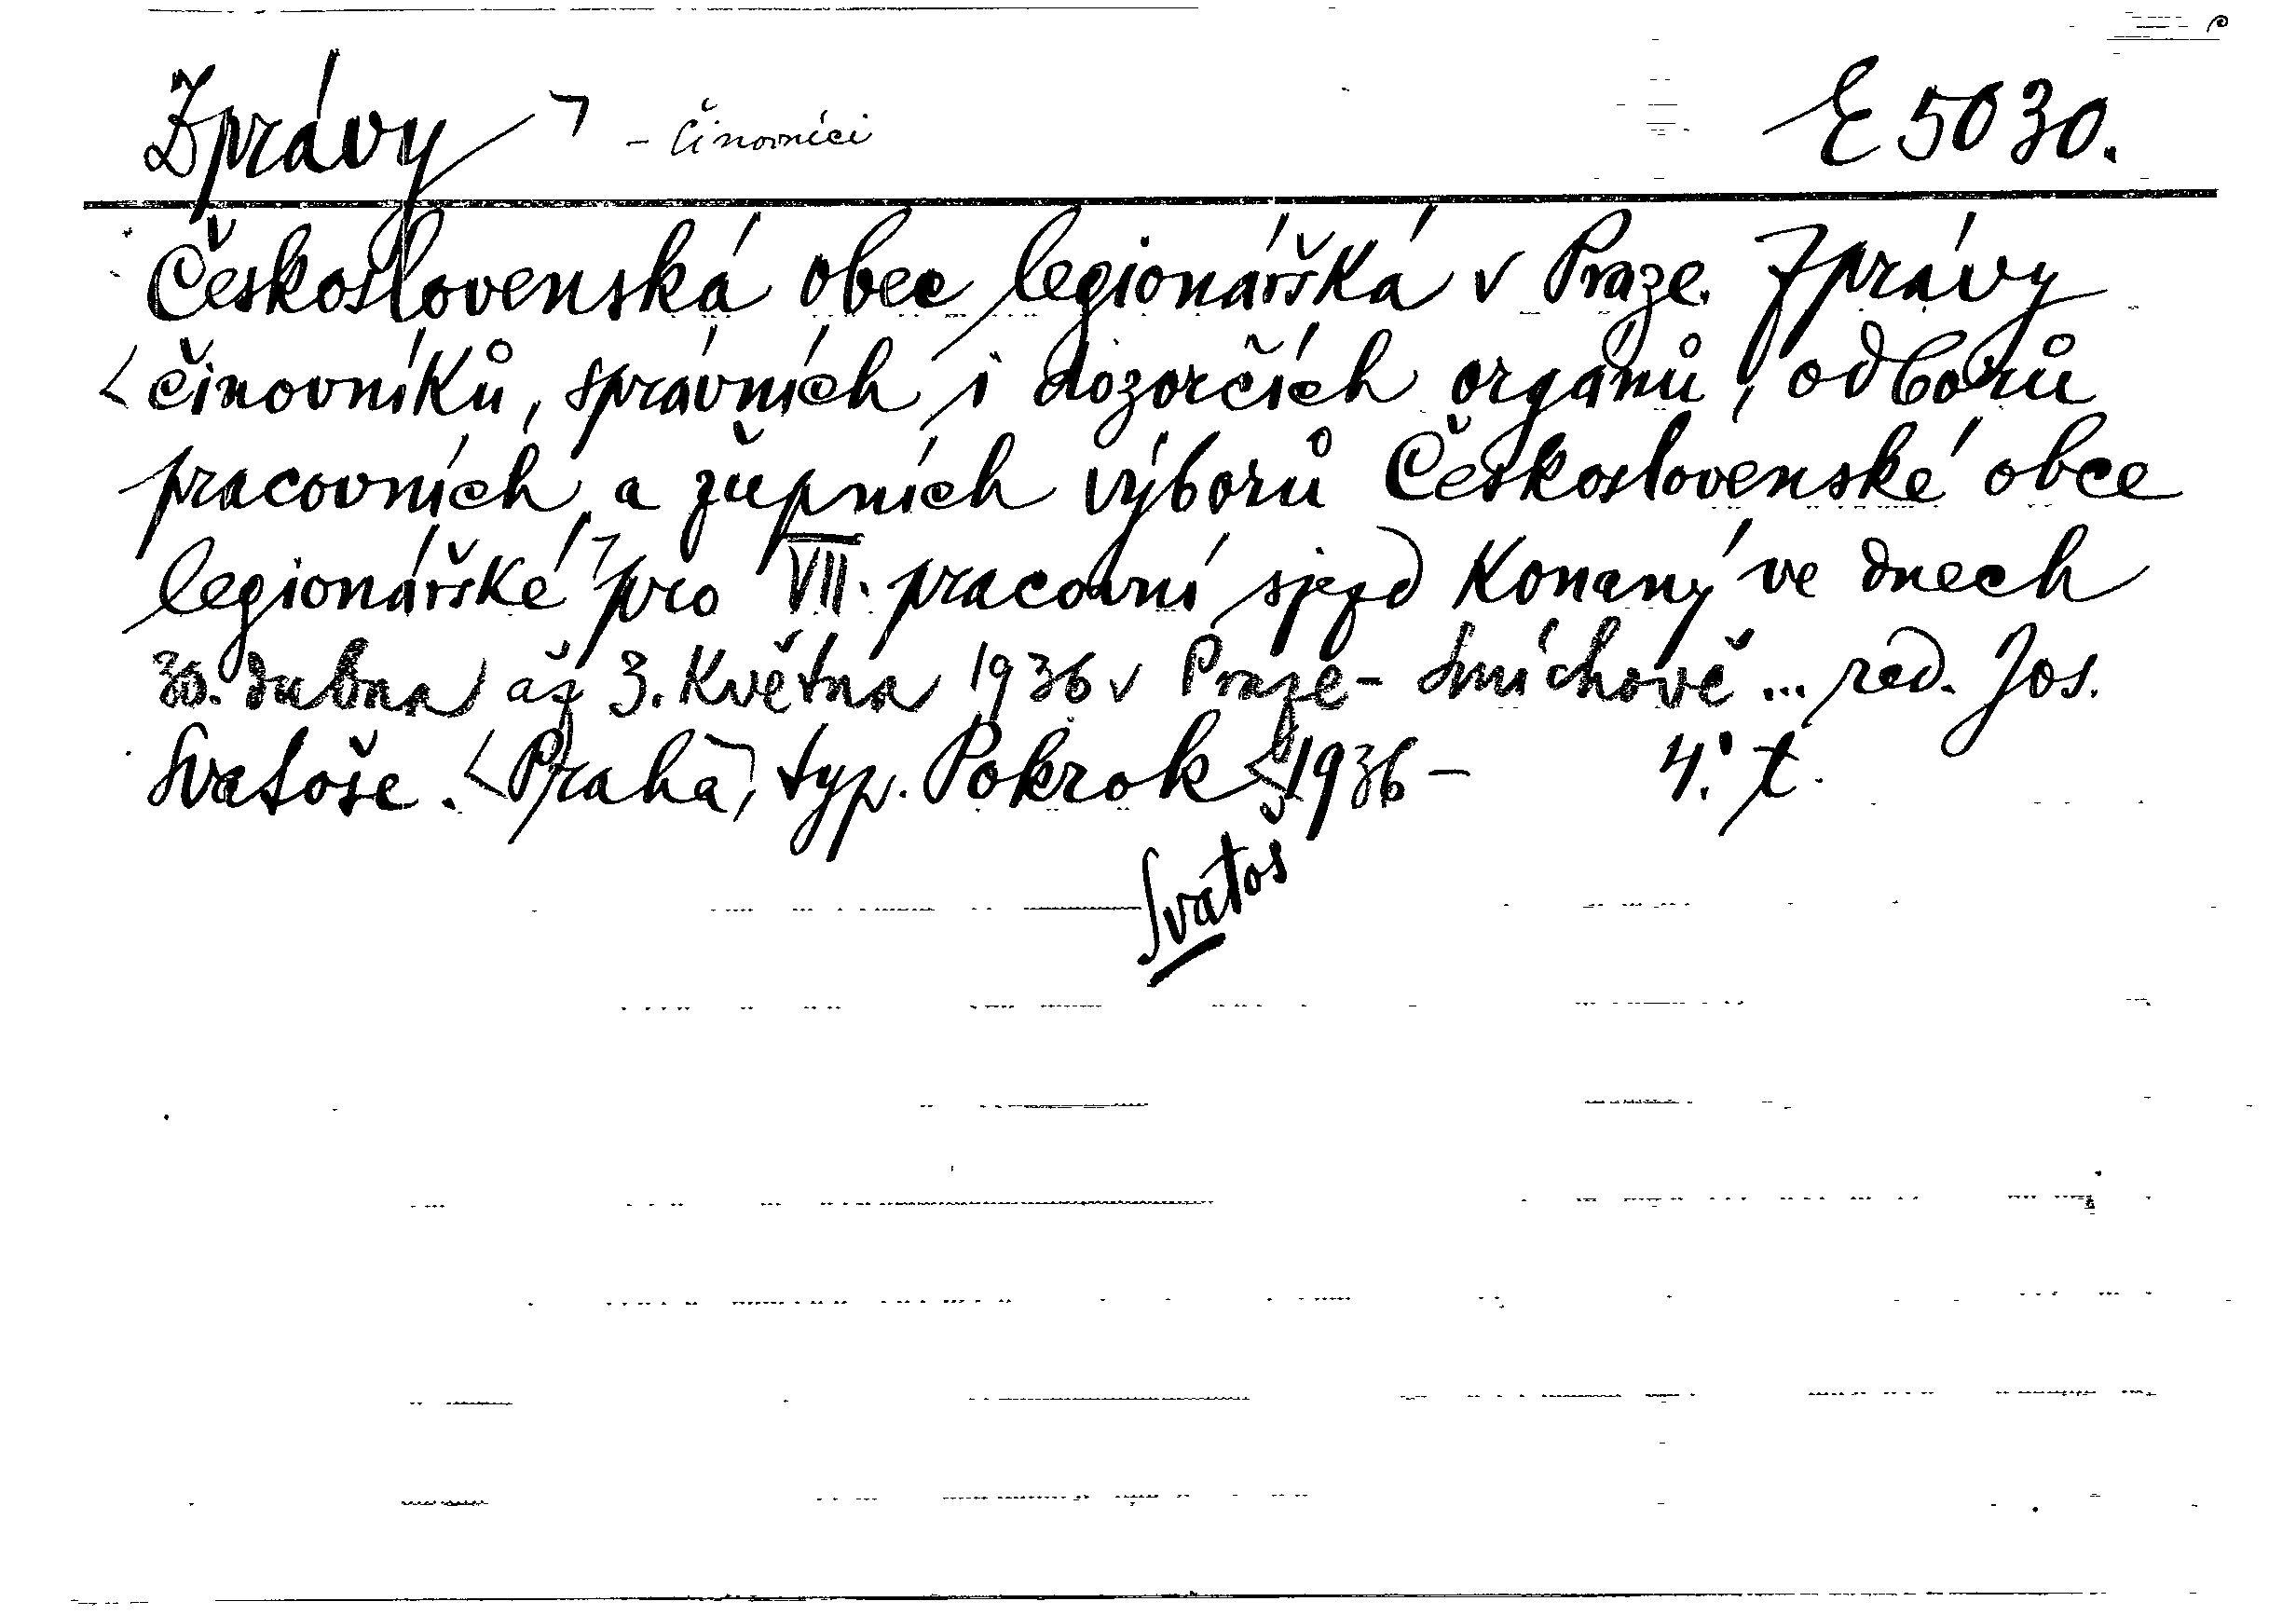 Zprávy ¬ - činovníci E 5030.
Československá obec legionářská v Praze. Zprávy
< činovníků, správních i dozorčích orgánů, odborů
pracovních a župních výborů Československé obce
legionářské ¬ pro VII. pracovní sjezd konaný ve dnech
30. dubna až 3. května 1936 v Praze - Smíchově ... red. Jos.
Svatoše. < Praha ¬, typ. Pokrok < 1936 - 4.° t.
Svatoš